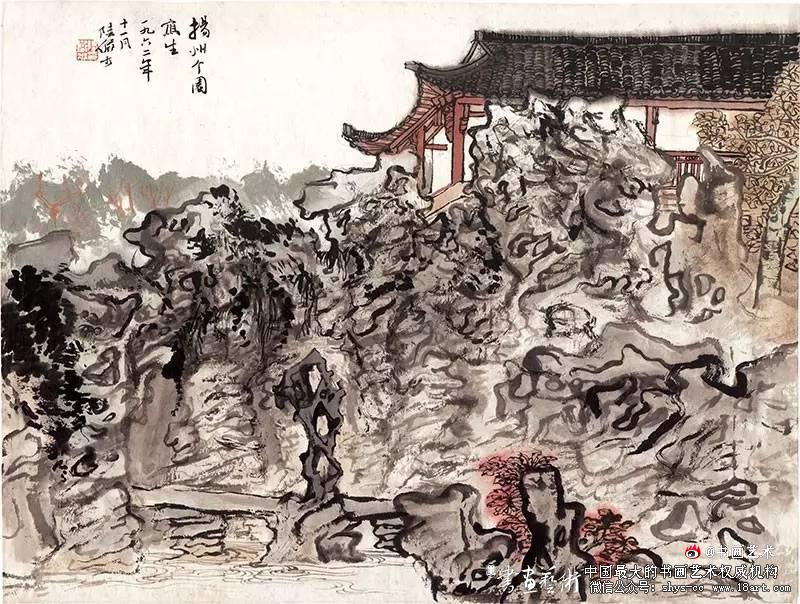 揚州个園
寫生
一九六二年
十一月
陸儼少
@书画艺术
書畫藝術
中国最大的书画艺术权威机构
微信公众号: shys-cc www.18art.com